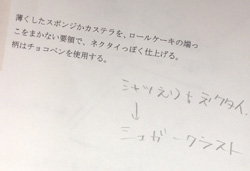 薄くしたスポンジかカステラを、ロールケーキの端っ
こをまかない要領で、ネクタイっぽく仕上げる。
柄はチョコペンを使用する。
シャツえりとネクタイ
↓
シュガークラスト